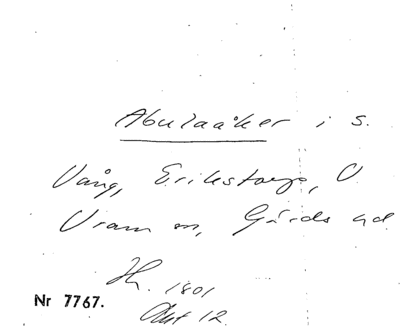 Abulaåker i s.
Vång, Erikstorp, V
Vram sn, Gärds hd
Hh. 1801
Akt 12
Nr 7767.